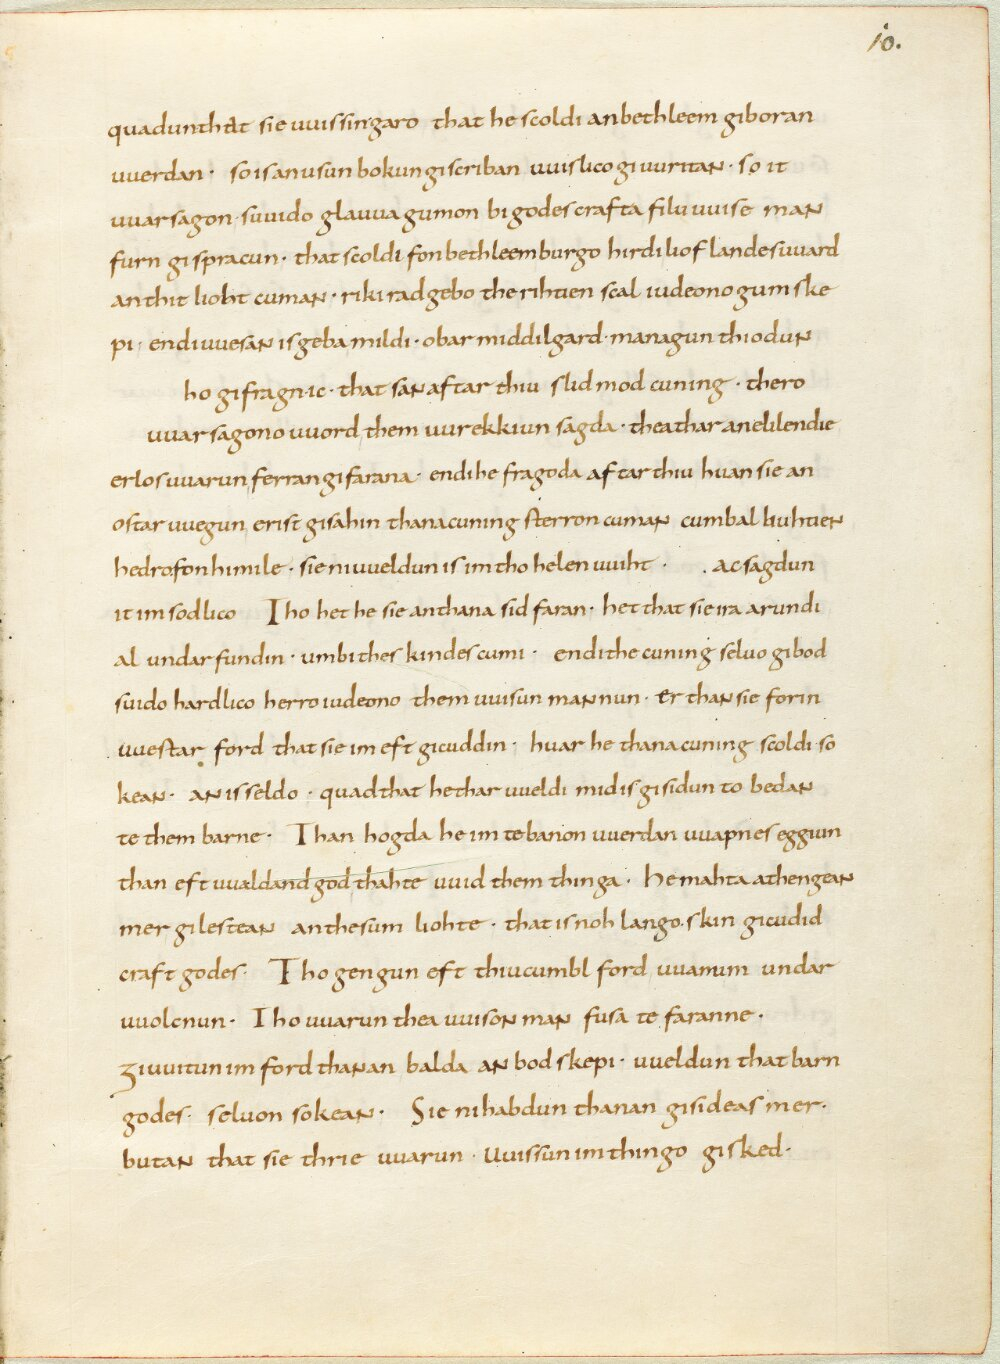 10.
quadun that sie uuissin garo that he scoldi an bethleem giboran
uuerdan · so is an usun bokun giscriban uuislico giuuritan · so it
uuarsagon · suuido glauua gumon bi godes crafta filu uuise man
furn gispracun · that scoldi fon bethleem burgo hirdi liof landes uuard
an thit lioht cuman · riki radgebo the rihtien scal iudeono gumske
pi · endi uuesan is geba mildi · obar middilgard · managun thiodun
ho gifragn ic · that san aftar thiu slidmod cuning · thero
uuarsagono uuord them uurekkiun sagda · thea thar an elilendie
erlos uuarun ferran gifarana · endi he fragoda aftar thiu huan sie an
ostar uuegun erist gisahin thana cuning sterron cuman cumbal liuhtien
hedro fon himile · sie ni uueldun is im tho helen uuiht · ac sagdun
it im sodlico Tho het he sie an thana sid faran · het that sie ira arundi
al undarfundin · umbi thes kindes cumi · endi the cuning seluo gibod
suido hardlico herro iudeono them uuisun mannun · er than sie forin
uuestar ford that sie im eft gicuddin · huar he thana cuning scoldi so
kean · an is seldo · quad that he thar uueldi mid is gisidun to bedan
te them barne · Than hogda he im te banon uuerdan uuapnes eggiun
than eft uualdand god thahte uuid them thinga · He mahta athengean
mer gilestean an thesum liohte · that is noh lango skin gicudid
craft godes · Tho gengun eft thiu cumbl ford uuanum undar
uuolcnun · Tho uuarun thea uuison man fusa te faranne ·
giuuitun im ford thanan balda an bodskepi · uueldun that barn
godes · seluon sokean · Sie ni habdun thanan gisideas mer ·
butan that sie thrie uuarun · uuissun im thingo gisked ·